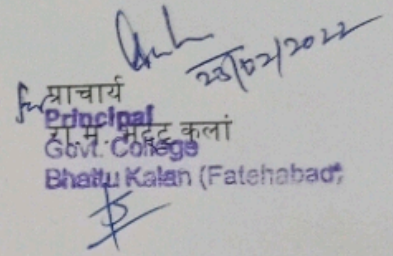 23/02/2022
for प्राचार्य
Principal
रा. म. भट्टू कलां
Govt. College
Bhattu Kalan (Fatehabad)